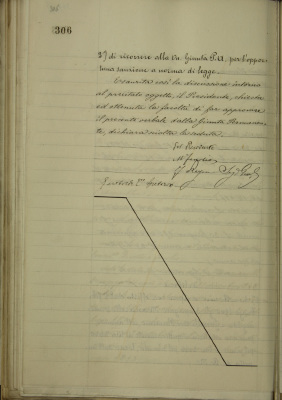 306
3°) di ricorrere alla On. Giunta P. A. per l'oppor-
tuna sanzione a norma di legge.
Esaurita così la discussione intorno
al precitato oggetto, il Presidente, chiesta
ed ottenuta la facoltà di far approvare
il presente verbale dalla Giunta Permanen-
te, dichiara sciolta la seduta.
Il Presidente